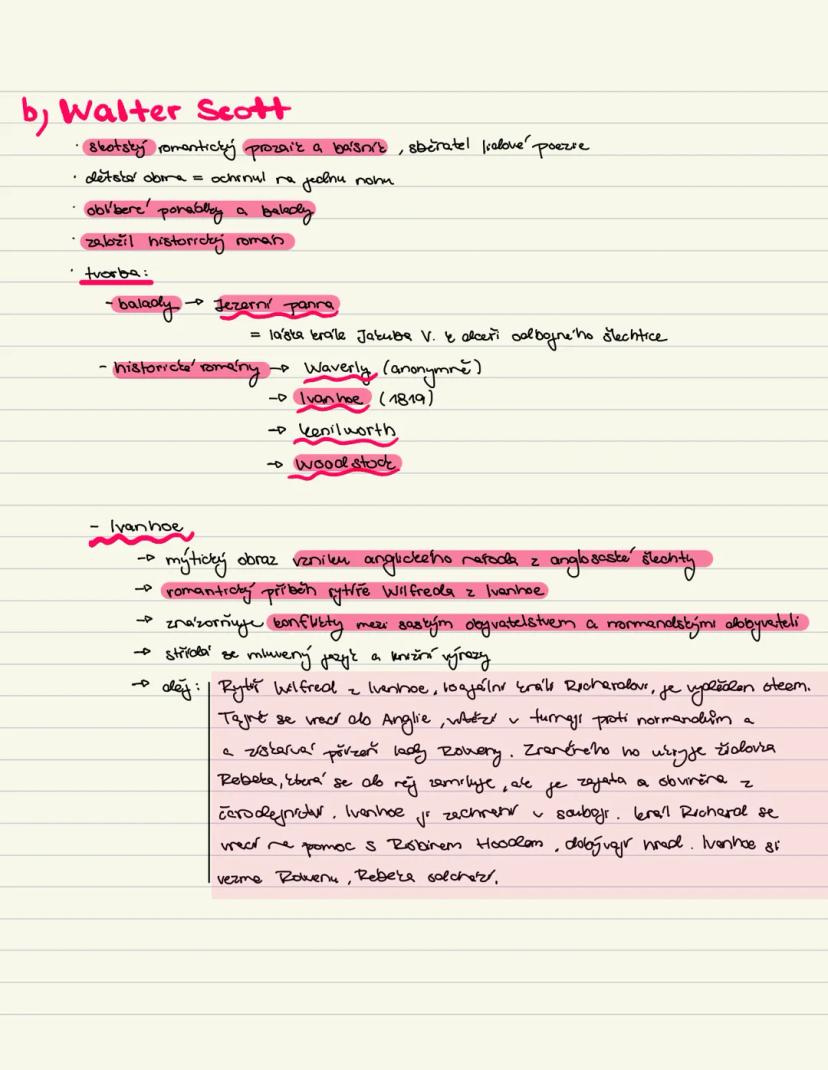 b, Walter Scott
· skotský romantický prozaik a básník, sběratel lidové poezie
· dětská obrna = ochrnul na jednu nohu
· oblíbené povídky a balady
· založil historický román
· tvorba:
- balady → Jezerní panna
= láska krále Jakuba V. k dceři odbojného šlechtice
- historické romány → Waverly (anonymně)
→ Ivanhoe (1819)
→ Kenilworth
→ Woodstock
- Ivanhoe
→ mýtický obraz vzniku anglického národa z anglosaské šlechty
→ romantický příběh rytíře Wilfreda z Ivanhoe
→ znázorňuje konflikty mezi saským obyvatelstvem a normandskými dobyvateli
→ střídá se mluvený jazyk a knižní výrazy
→ děj: Rytíř Wilfred z Ivanhoe, loajální králi Richardovi, je vyděděn otcem.
Tajně se vrací do Anglie, vítězí v turnaji proti normandům a
a získává přízeň lady Roweny. Zraněného ho ukryje židovka
Rebeka, která se do něj zamiluje, ale je zajata a obviněna z
čarodejnictví. Ivanhoe ji zachrání v souboji. král Richard se
vrací na pomoc s Robinem Hoodem, dobývají hrad. Ivanhoe si
vezme Rowenu, Rebeka odchází.